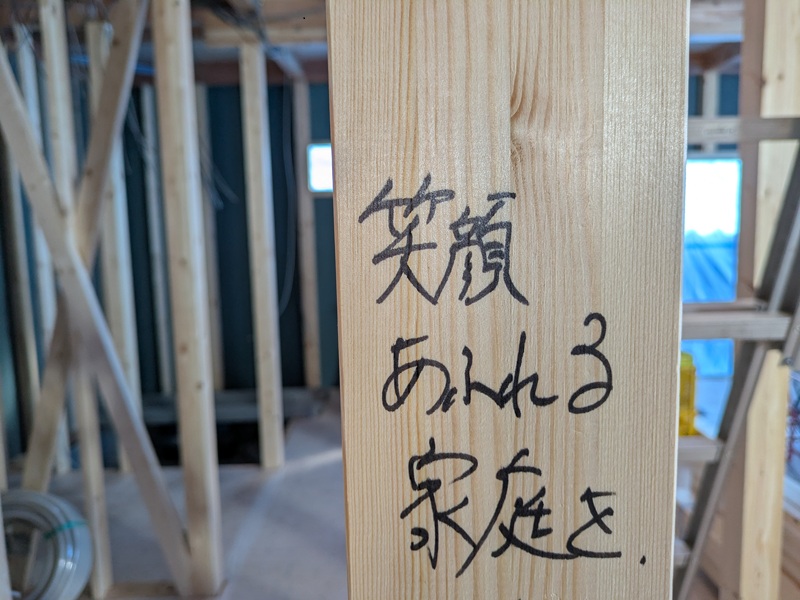 笑顔
あふれる
家庭を.